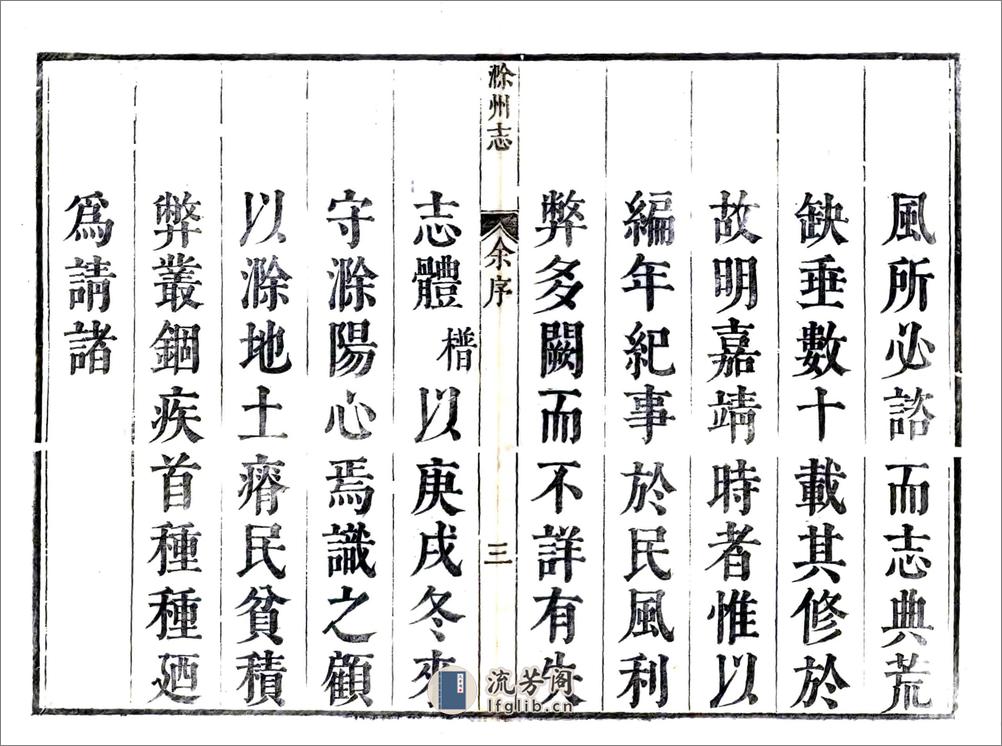 風所必諮而志典荒
缺垂數十載其修於
故明嘉靖時者惟以
編年紀事於民風利
弊多闕而不詳有失
滁州志
余序
三
志體㯤以庚戌冬來
守滁陽心焉識之顧
以滁地土瘠民貧積
弊叢錮疾首種種廼
爲請諸
流芳阁
lfglib.cn